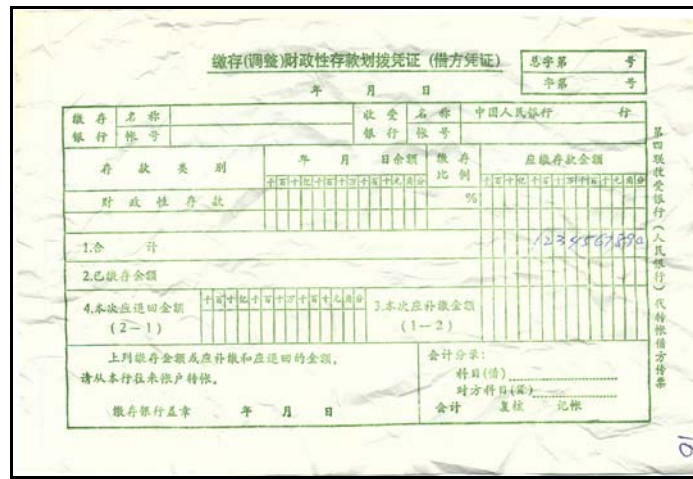 缴存(调整)财政性存款划拨凭证 (借方凭证)
总字第 号
字第 号
年 月 日
缴存银行 名称 收受银行 名称 中国人民银行 行
帐号 帐号
存款类别 年 月 日余额 缴存比例 应缴存款金额
千百十亿千百十万千百十元角分 千百十亿千百十万千百十元角分
财政性存款 %
1.合 计 1234567890
2.已缴存金额
4.本次应退回金额 (2-1) 千百十亿千百十万千百十元角分 3.本次应补缴金额 (1-2)
上列缴存金额或应补缴和应退回的金额,
请从本行往来帐户转帐。
缴存银行盖章 年 月 日
会计分录:
科目(借)
对方科目(贷)
会计 复核 记帐
第四联收受银行(人民银行)代转帐借方传票
10